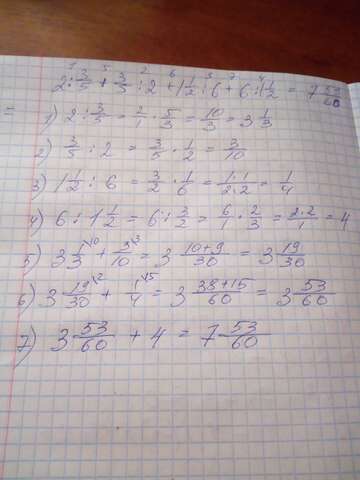 1 5 2 6 3 7 4
2 : 3/5 + 3/5 : 2 + 1 1/2 : 6 + 6 : 1 1/2 = 7 53/60
= 1) 2 : 3/5 = 2/1 · 5/3 = 10/3 = 3 1/3
2) 3/5 : 2 = 3/5 · 1/2 = 3/10
3) 1 1/2 : 6 = 3/2 · 1/6 = 1·1/2·2 = 1/4
4) 6 : 1 1/2 = 6 : 3/2 = 6/1 · 2/3 = 2·2/1 = 4
5) 3 1/3 \10 + 3/10 \3 = 3 10+9/30 = 3 19/30
6) 3 19/30 \2 + 1/4 \15 = 3 38+15/60 = 3 53/60
7) 3 53/60 + 4 = 7 53/60